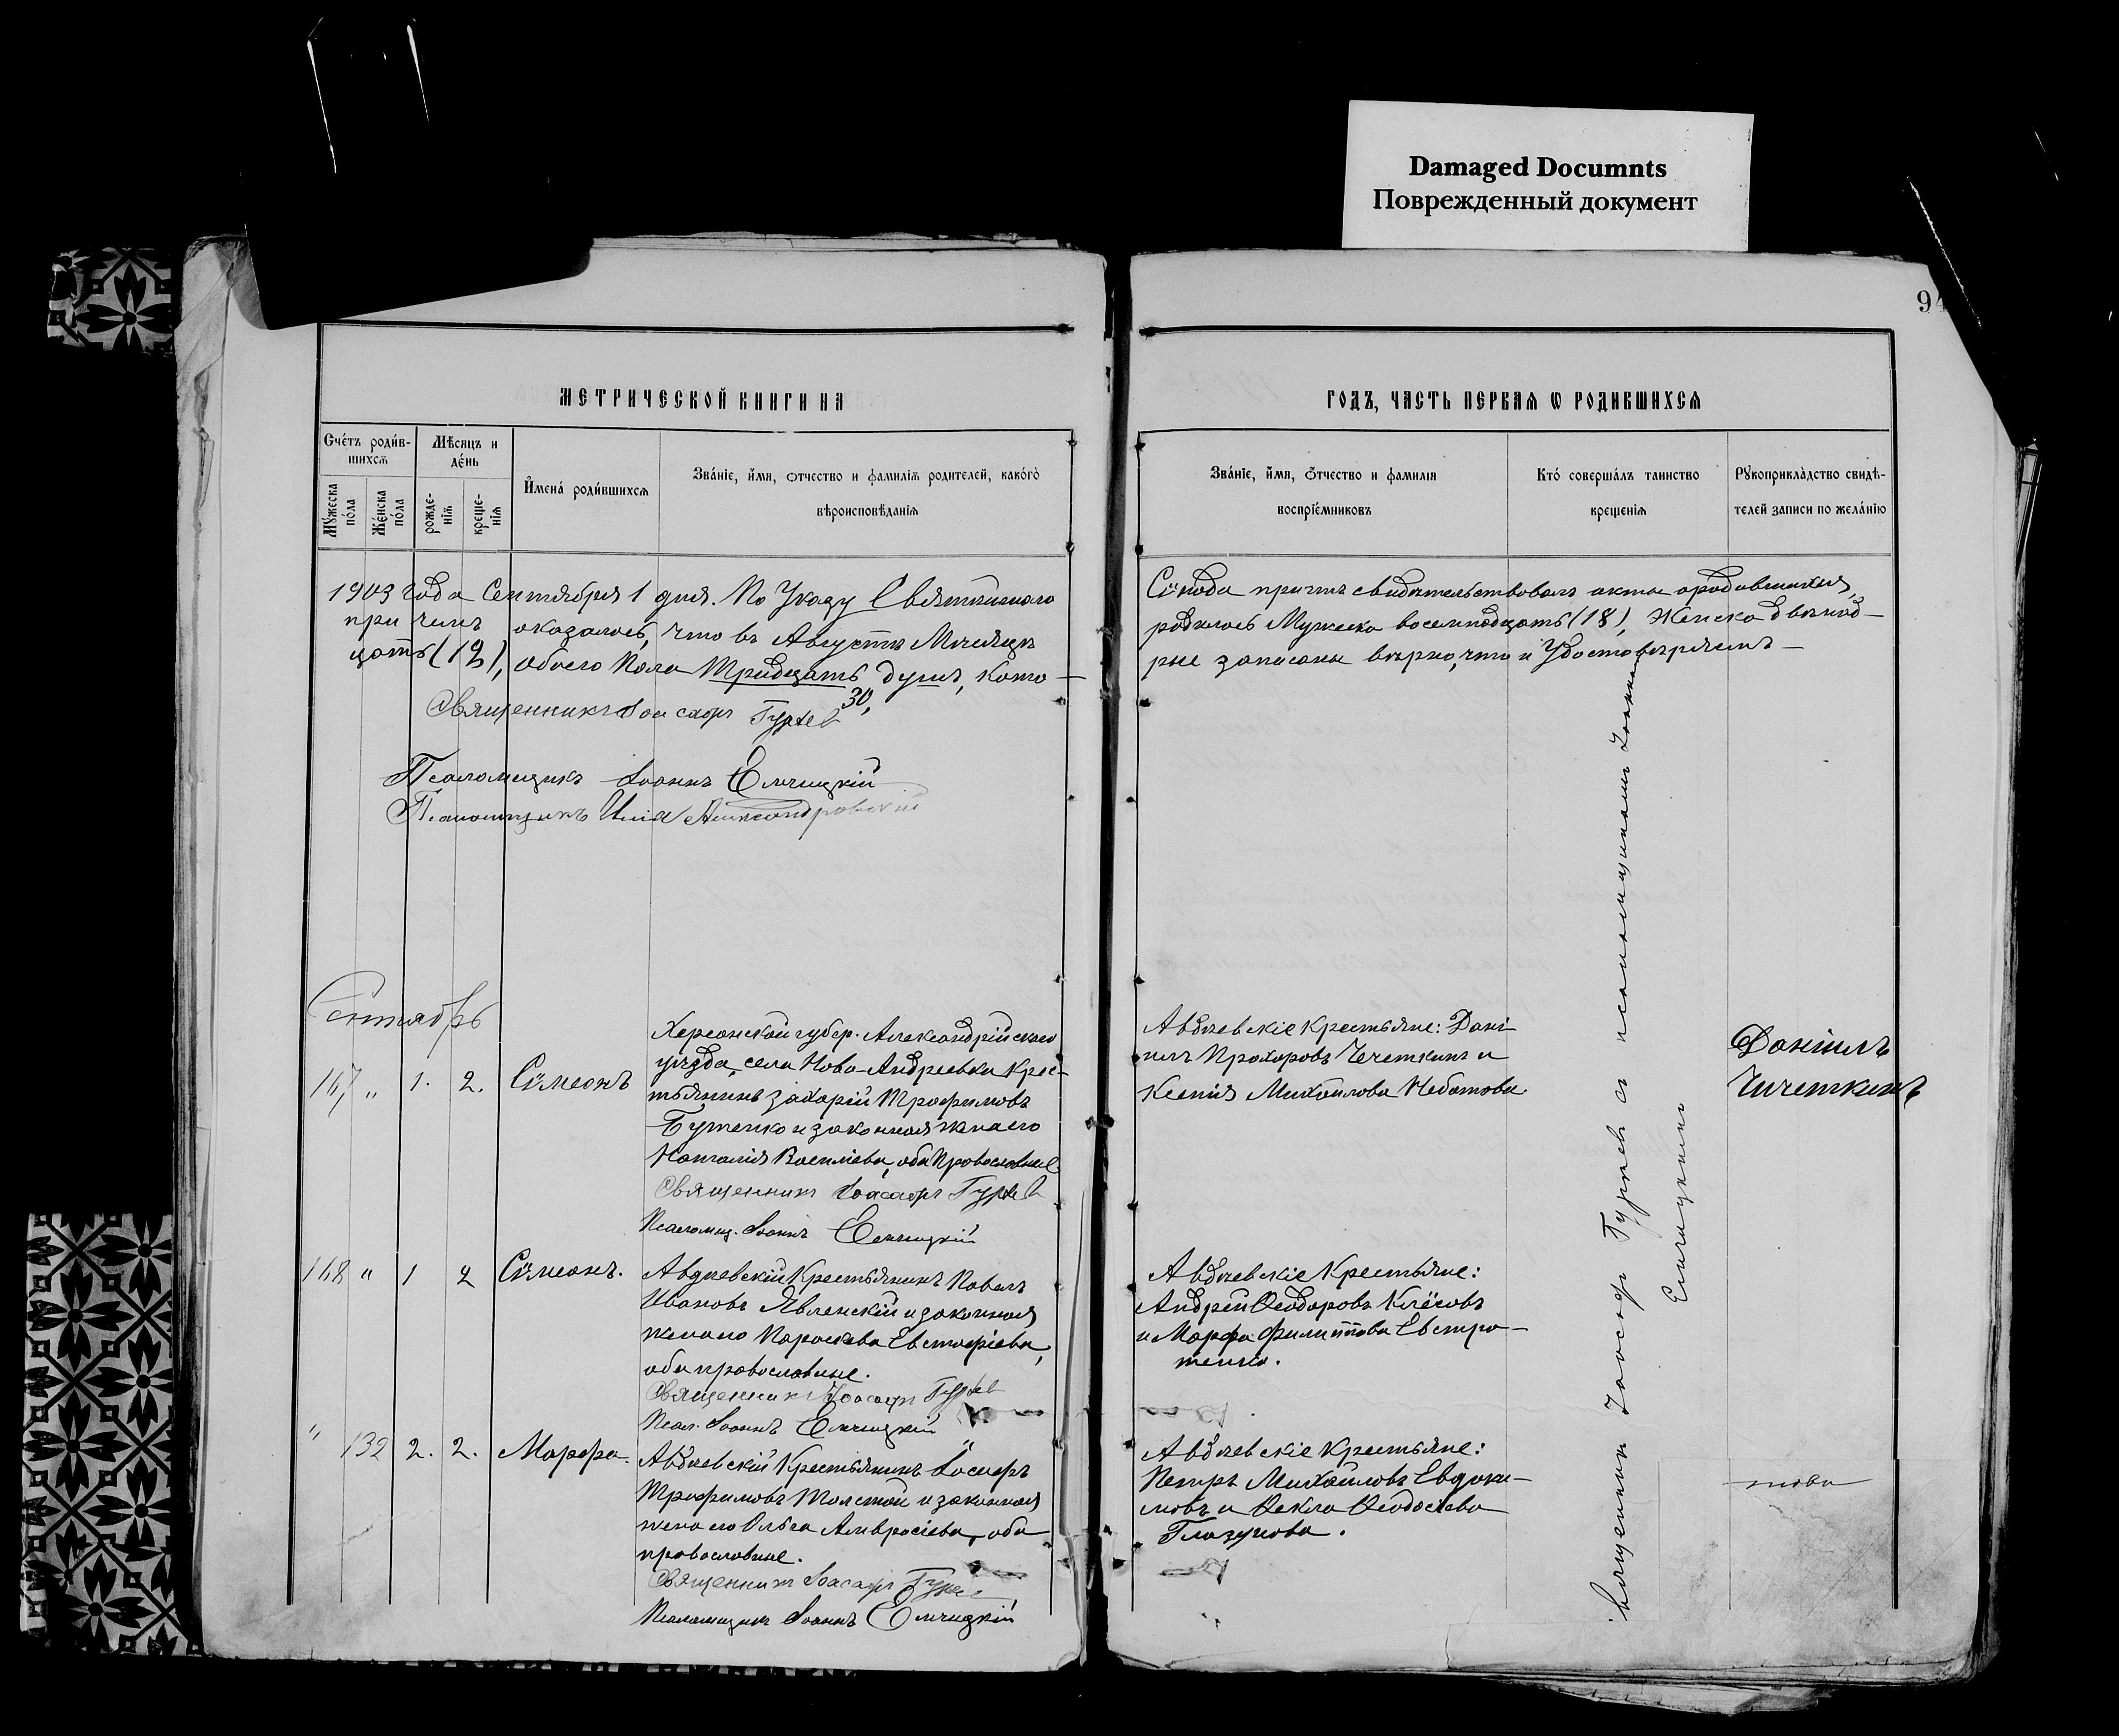 Damaged Documnts
Поврежденный документ
94
МЕТРИЧЕСКОЙ КНИГИ НА
Счетъ родив-
шихся
Мѣсяцъ и
день
Мужеска
пола
Женска
пола
рожде-
нія
креще-
нія
Имена родившихся
Званіе, имя, отчество и фамилія родителей, какого
вѣроисповѣданія
1903 года Сентября 1 дня. По Указу Святѣйшаго
при чемъ оказалось, что въ Августѣ Мѣсяцѣ
цать (12), обоего пола Тридцать душъ, кото-
30,
Священникъ Іоасафъ Гурьев
Псаломщикъ Іоаннъ Елчицкій
Псаломщикъ Илія Александровскій
Сентябрь
147 " 1. 2. Сѵмеонъ
Херсонской губер. Александрійскаго
уѣзда, села Ново-Андреевки крес-
тьянинъ Захарій Трофимовъ
Бутенко и законная жена его
Наталія Васильева, оба православные
Священникъ Іоасафъ Гурьев
Псаломщ. Іоаннъ Елчицкій
148 " 1 2 Сѵмеонъ.
Авдѣевскій Крестьянинъ Павелъ
Ивановъ Явленскій и законная
жена его Параскева Евстафіева,
оба православные.
Священникъ Іоасафъ Гурьев
Псал. Іоаннъ Елчицкій
" 132 2. 2. Марфа.
Авдѣевскій Крестьянинъ Іосифъ
Трофимовъ Толстой и законная
жена его Ольга Амвросіева, оба
православные.
Священникъ Іоасафъ Гурьев
Псаломщикъ Іоаннъ Елчицкій
ГОДЪ, ЧАСТЬ ПЕРВАЯ Ѡ РОДИВШИХСЯ
Званіе, имя, отчество и фамилія
воспріемниковъ
Кто совершалъ таинство
крещенія
Рукоприкладство свидѣ-
телей записи по желанію
Сѵнода причтъ свидѣтельствовалъ акты о родившихся,
родилось Мужеска восемнадцать (18), Женска двѣнад-
рые записаны вѣрно, что и Удостовѣряемъ —
Авдѣевскіе Крестьяне: Дані-
илъ Прохоровъ Чечеткинъ и
Ксенія Михайлова
Даніилъ
Чичеткинъ
Авдѣевскіе Крестьяне:
Андрей Ѳеодоровъ Клёсовъ
и Марфа Филиппова Евстро-
тенко.
Авдѣевскіе Крестьяне:
Петръ Михайловъ Евдоки-
мовъ и Ѳекла Ѳеодосіева
Глазунова.
това
Священникъ Іоасафъ Гурьевъ съ псаломщикомъ Іоанномъ
Елчицкимъ